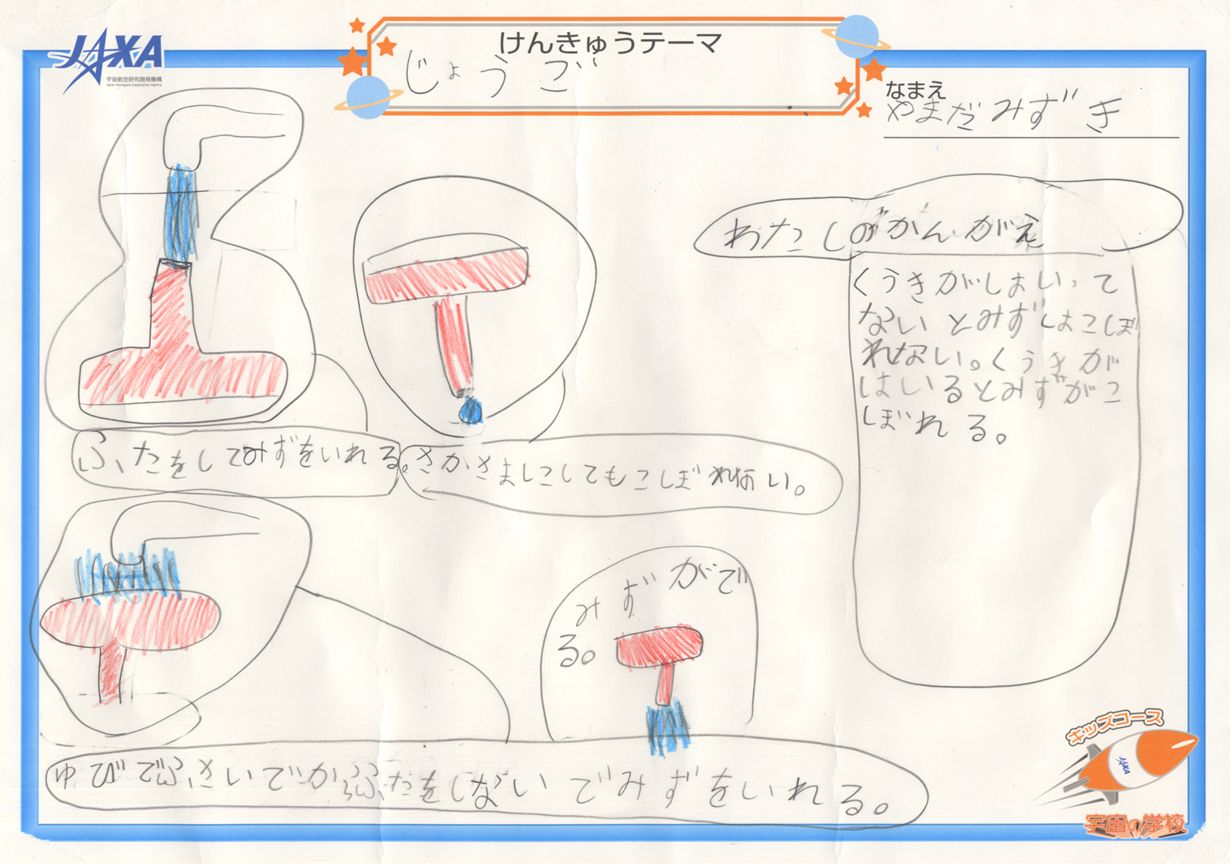 JAXA
宇宙航空研究開発機構
Japan Aerospace Exploration Agency
けんきゅうテーマ
じょうご
なまえ
やまだみずき
わたしのかんがえ
くうきがはいって
ないとみずはこぼ
れない。くうきが
はいるとみずがこ
ぼれる。
ふたをしてみずをいれる。
さかさまにしてもこぼれない。
みずがで
る。
ゆびでふさいでからふたをしないでみずをいれる。
キッズコース
JAXA
宇宙の学校